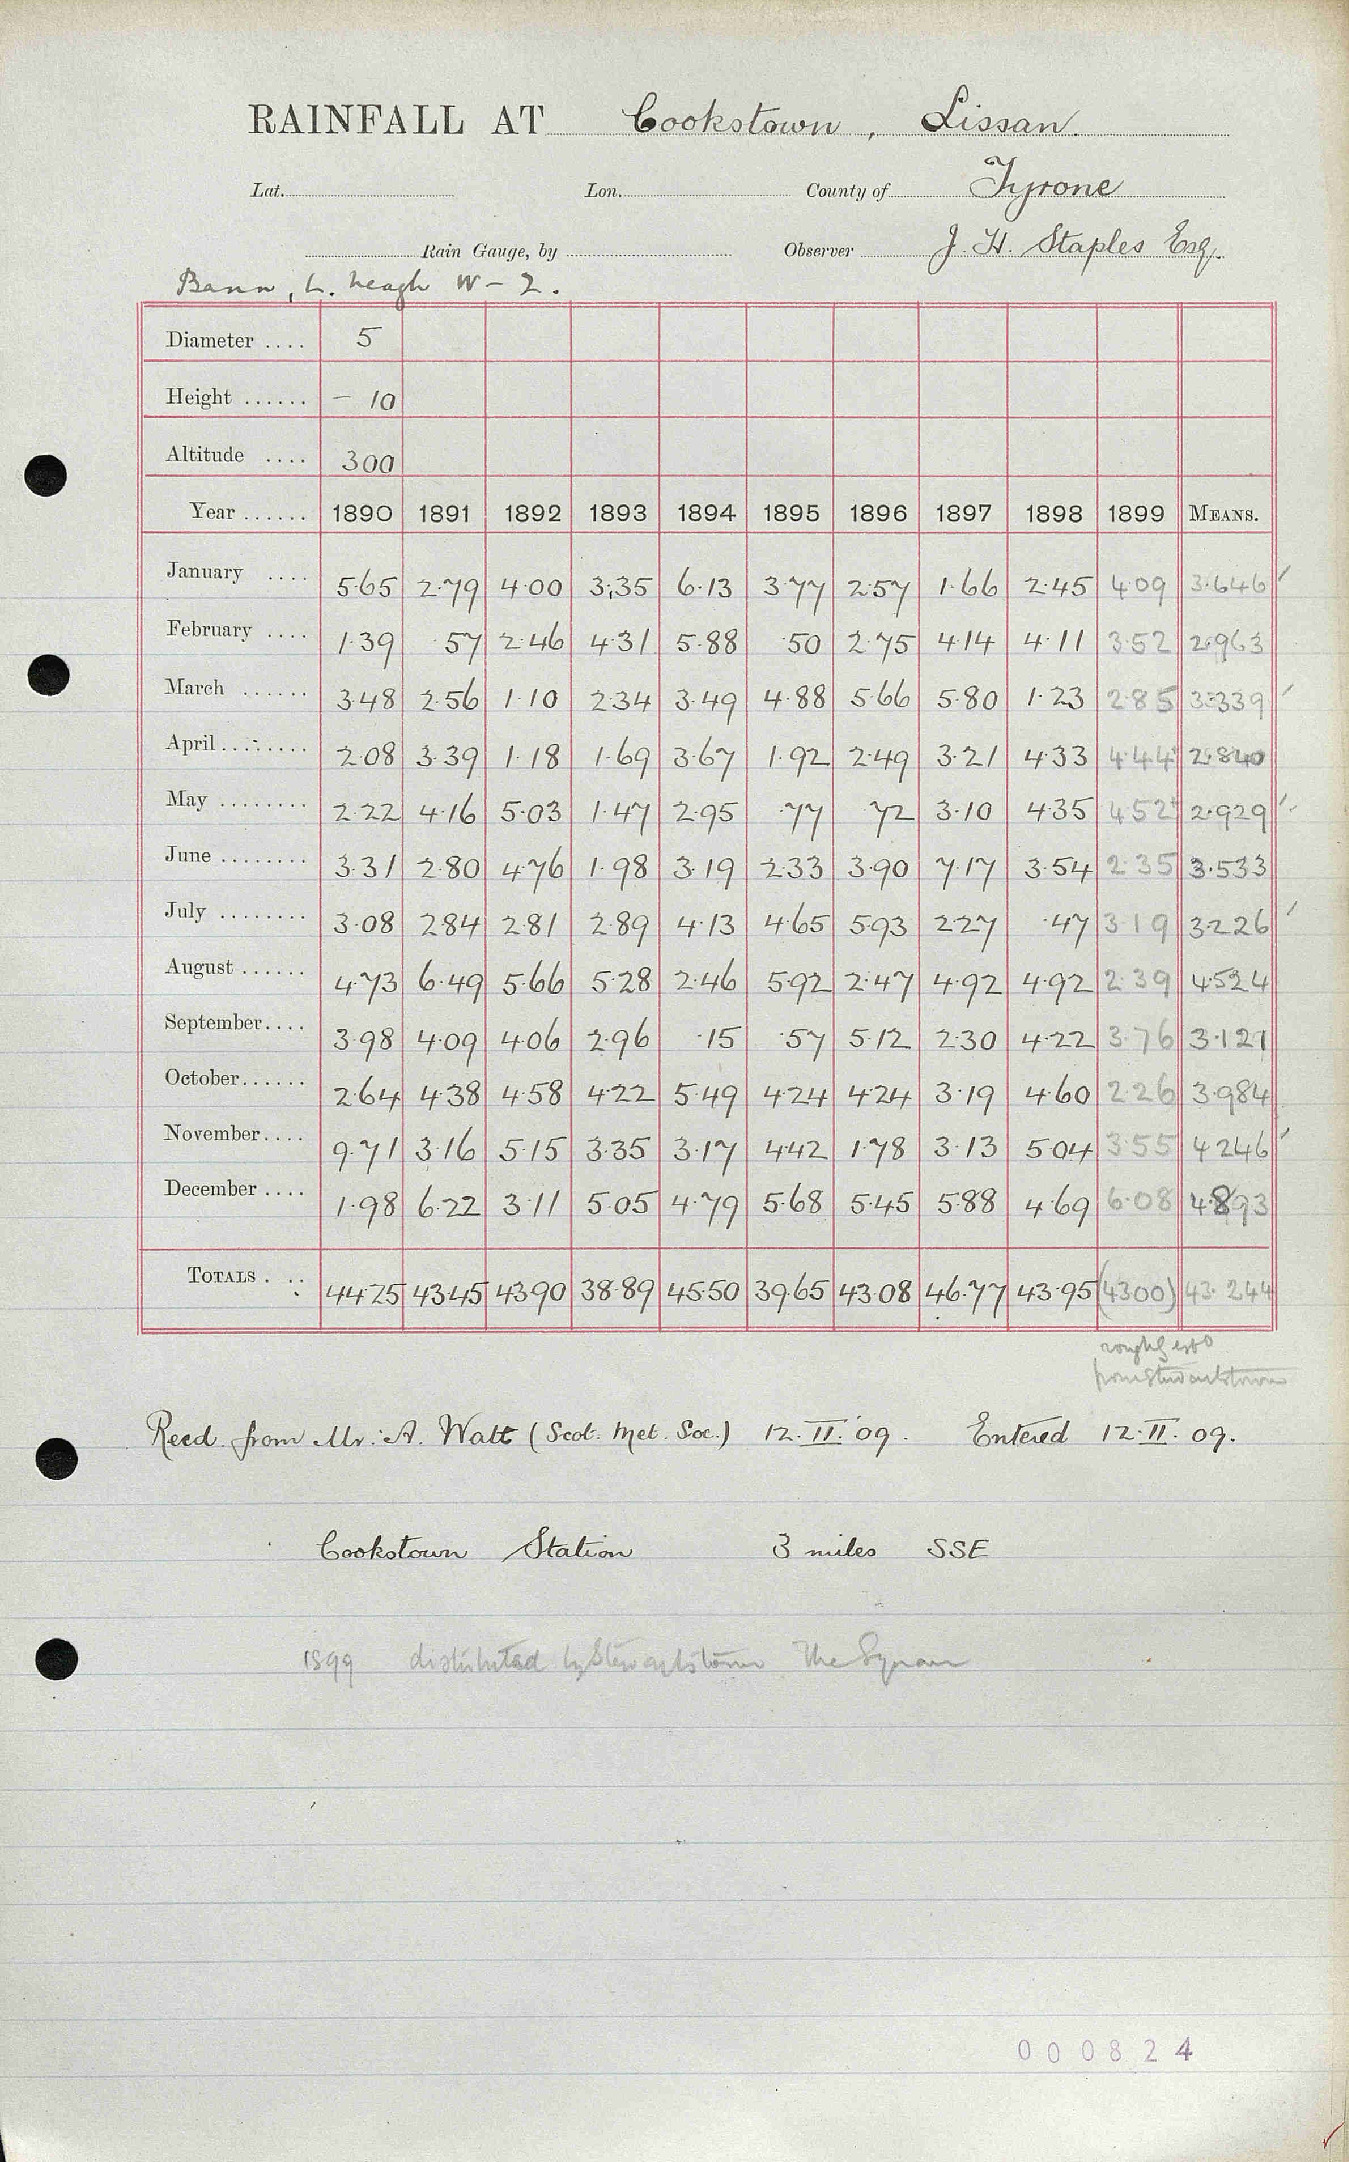 RAINFALL AT Cookstown, Lissan.
Lat. Lon. County of Tyrone
Rain Gauge, by Observer J. H. Staples Esq.
Bann, L. Neagh W - 2.
Diameter .... 5
Height ...... - 10
Altitude .... 300
Year ...... 1890 1891 1892 1893 1894 1895 1896 1897 1898 1899 MEANS.
January .... 5.65 2.79 4.00 3.35 6.13 3.77 2.57 1.66 2.45 4.09 3.646
February .... 1.39 .57 2.46 4.31 5.88 .50 2.75 4.14 4.11 3.52 2.963
March ...... 3.48 2.56 1.10 2.34 3.49 4.88 5.66 5.80 1.23 2.85 3.339
April ........ 2.08 3.39 1.18 1.69 3.67 1.92 2.49 3.21 4.33 4.44 2.840
May ........ 2.22 4.16 5.03 1.47 2.95 .77 .72 3.10 4.35 4.52 2.929
June ........ 3.31 2.80 4.76 1.98 3.19 2.33 3.90 7.17 3.54 2.35 3.533
July ........ 3.08 2.84 2.81 2.89 4.13 4.65 5.93 2.27 .47 3.19 3.226
August ...... 4.73 6.49 5.66 5.28 2.46 5.92 2.47 4.92 4.92 2.39 4.524
September .... 3.98 4.09 4.06 2.96 .15 .57 5.12 2.30 4.22 3.76 3.121
October ...... 2.64 4.38 4.58 4.22 5.49 4.24 4.24 3.19 4.60 2.26 3.984
November .... 9.71 3.16 5.15 3.35 3.17 4.42 1.78 3.13 5.04 3.55 4.246
December .... 1.98 6.22 3.11 5.05 4.79 5.68 5.45 5.88 4.69 6.08 4.893
TOTALS . .. 44.25 43.45 43.90 38.89 45.50 39.65 43.08 46.77 43.95 (43.00) 43.244
from Stewartstown
Recd from Mr. A. Watt (Scot. Met. Soc.) 12.II.09. Entered 12.II.09.
Cookstown Station 3 miles SSE
1899 distributed by Stewartstown The Square
000824